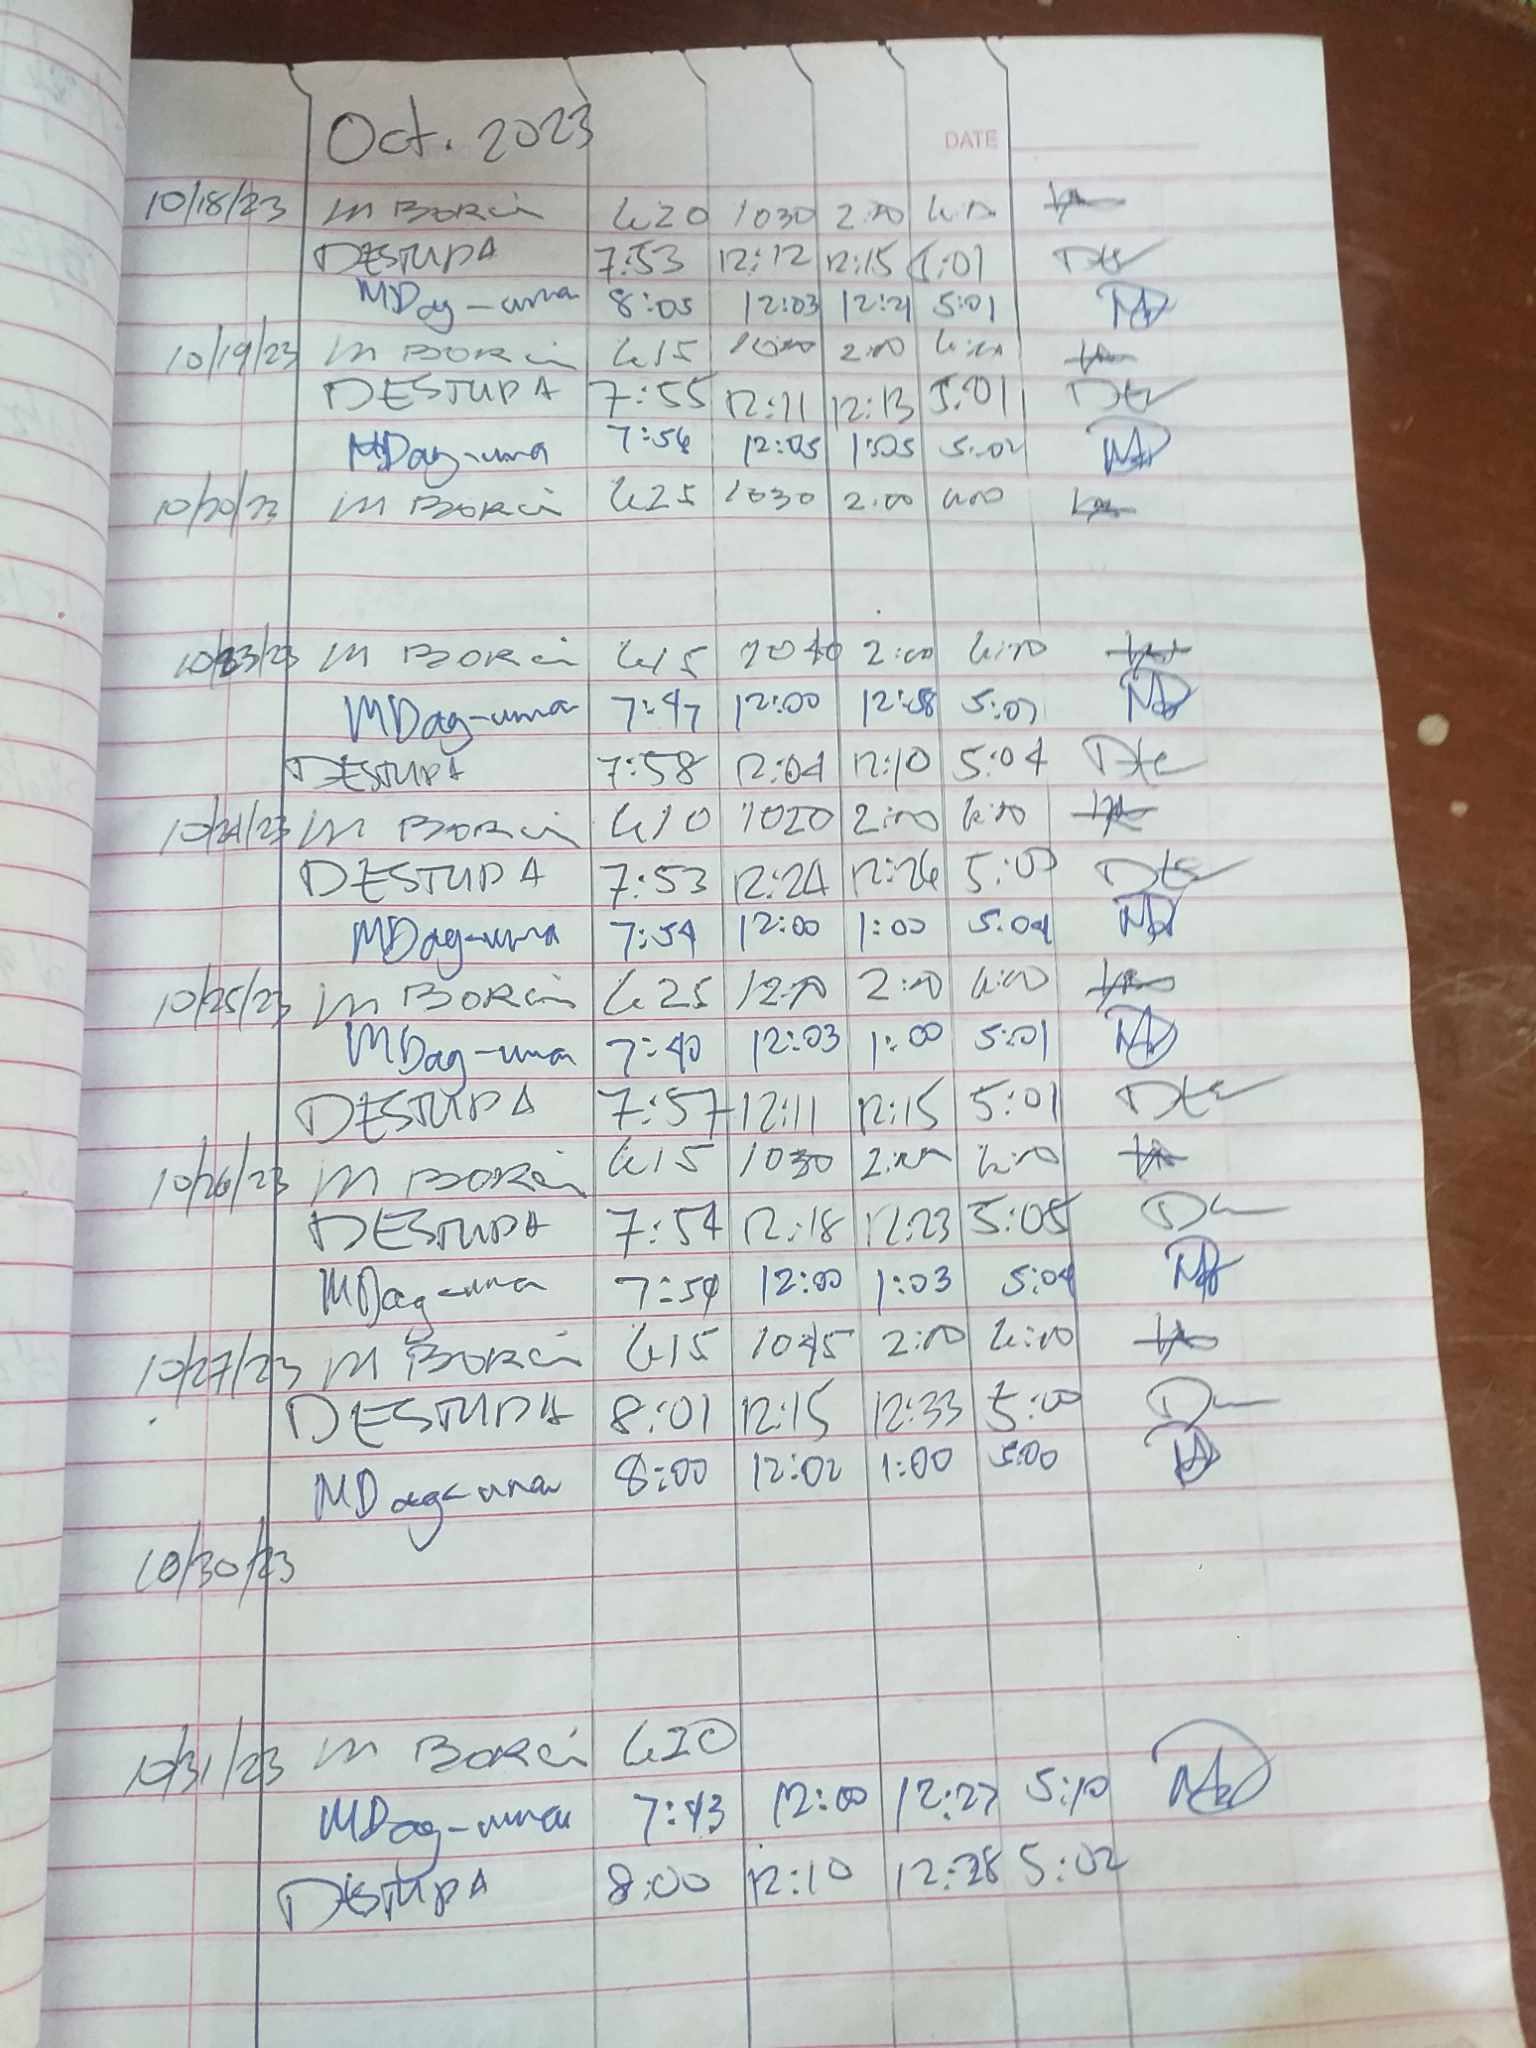 Oct. 2023
DATE
10/18/23 M BORCI 620 1030 2:00
DESTUPA 7:53 12:12 12:15 5:01
MDag-uma 8:05 12:03 12:21 5:01
10/19/23 M BORCI 615 2:00
DESTUPA 7:55 12:11 12:13 5:01
MDag-uma 7:56 12:05 1:05 5:02
10/20/23 M BORCI 625 1030 2:00
10/23/23 M BORCI 615 1040 2:00 4:00
MDag-uma 7:47 12:00 12:08
DESTUPA 7:58 12:04 12:10 5:04
10/24/23 M BORCI 610 1020 2:00 4:00
DESTUPA 7:53 12:24 12:26
MDag-uma 7:54 12:00 1:00 5:04
10/25/23 M BORCI 625 2:00 4:00
MDag-uma 7:40 12:03 1:00 5:01
DESTUPA 7:57 12:11 12:15 5:01
10/26/23 M BORCI 615 1030 2:00 4:00
DESTUPA 7:54 12:18 12:23 5:05
MDag-uma 7:54 12:00 1:03 5:04
10/27/23 M BORCI 615 1045 2:00 4:00
DESTUPA 8:01 12:15 12:33 5:00
MDag-uma 8:00 12:02 1:00 5:00
10/30/23
10/31/23 M BORCI 620
MDag-uma 7:43 12:00 12:27 5:10
DESTUPA 8:00 12:10 12:28 5:02